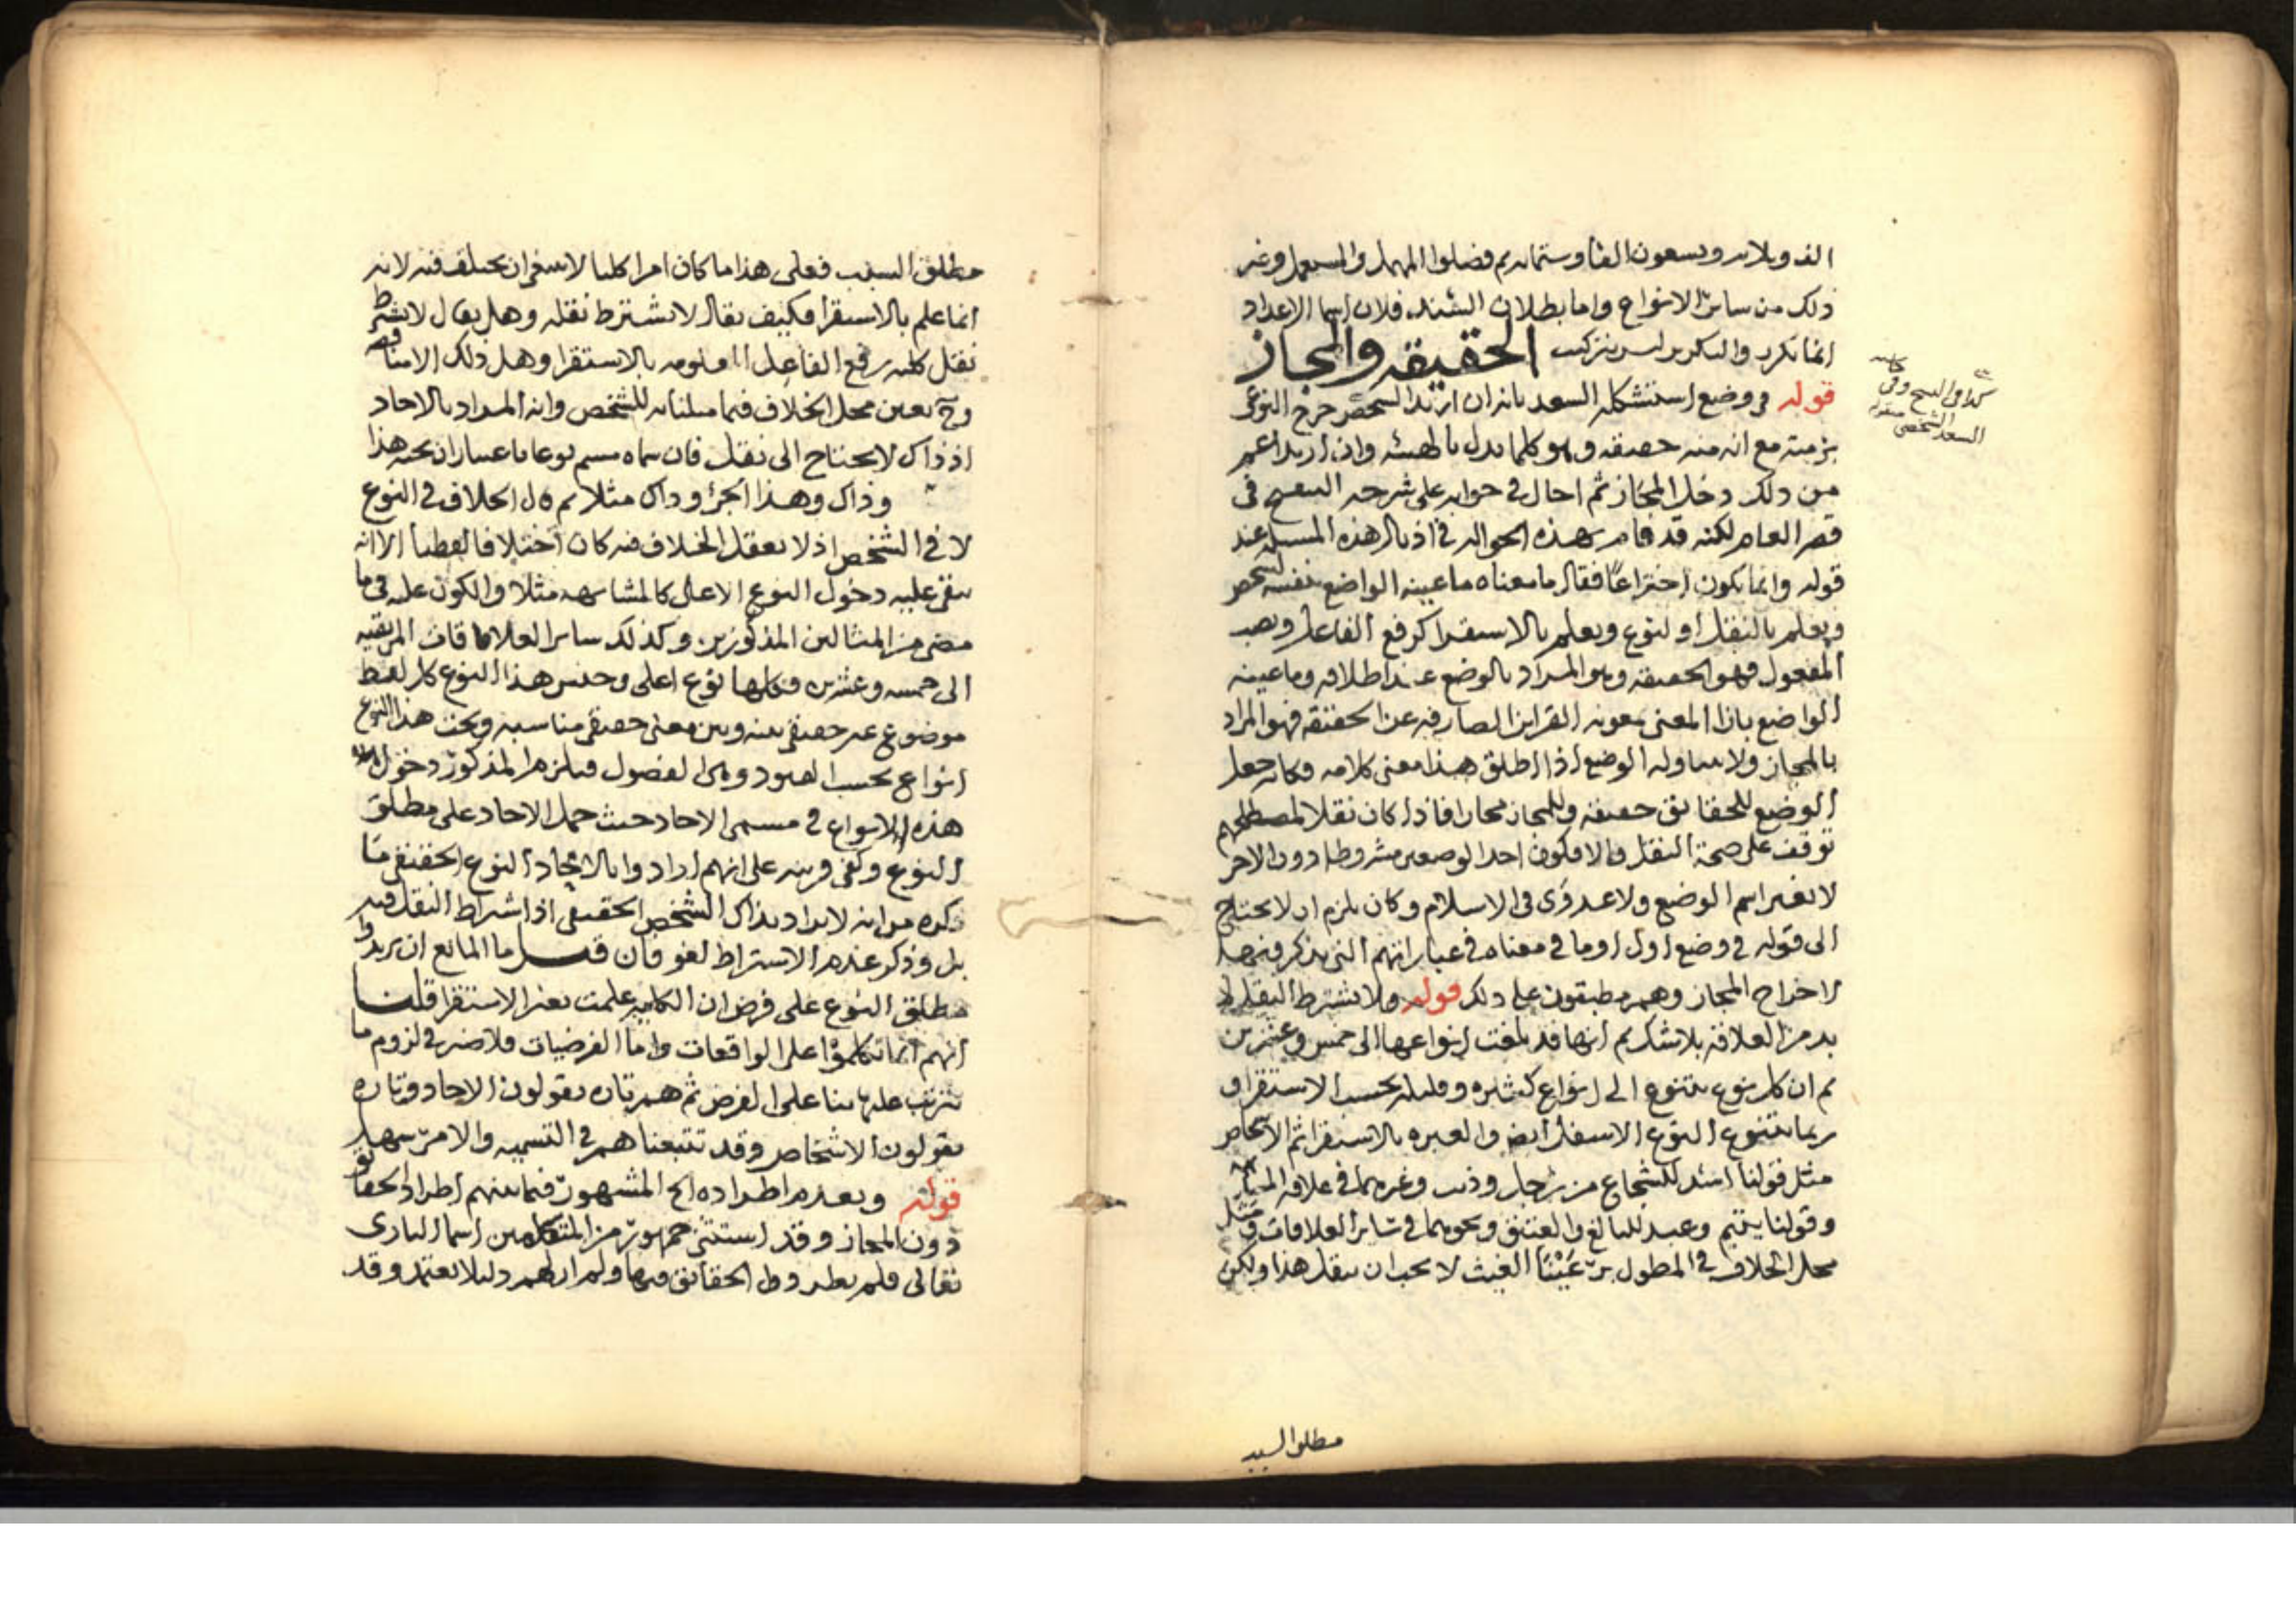 الف وثلاث وتسعون الفا وستمائه ثم فضلوا المهمل والمستعمل وغير
ذلك من سائر الانواع واما بطلان السند فلان اسما الاعداد
انما تكرر والتكرير ليس بتركيب الحقيقه والمجاز
قوله في وضع استشكله السعد بانه ان اريد الشخصي خرج النوعي
برمته مع انه منه حقيقه وهو كلما يدل بالهيئه وان اريد اعم
من ذلك دخل المجاز ثم احال في جوابه على شرحه التنقيح في
قصر العام لكنه قد قام بهذه الحواله في اذيال هذه المسئله عند
قوله وانما يكون اختراعا فقال ما معناه ما عينه الواضع بنفسه لشخص
ويعلم بالنقل او لنوع ويعلم بالاستقرا كرفع الفاعل ونصب
المفعول فهو الحقيقه وهو المراد بالوضع عند اطلاقه وما عينه
الواضع بازا المعنى بمعونه القراين الصارفه عن الحقيقه فهو المراد
بالمجاز ولا يتناوله الوضع اذا اطلق هذا معنى كلامه فكانه جعل
الوضع للحقائق حقيقه وللمجاز مجازا فاذا كان نقلا لمصطلحهم
توقف على صحة النقل والا فكون احد الوضعين مشروطا دون الاخر
لا يغير اسم الوضع ولا عدوى في الاسلام وكان يلزم ان لا يحتاج
الى قوله في وضع اول او ما في معناه في عباراتهم التي يذكر فيها
لاخراج المجاز وهم مطبقون على ذلك قوله ولا يشترط النقل لا
بد من العلاقه بلا شك ثم انها قد بلغت انواعها الى خمس وعشرين
ثم ان كل نوع يتنوع الى انواع كثيره وقليله بحسب الاستقرا و
ربما يتنوع النوع الاسفل ايضا والعبره بالاستقرا ثم الاشخاص
مثل قولنا اسد للشجاع من رجل وذئب وغيرهما في علاقه المشابهه
وقولنا يتيم وعبد للبالغ والعتيق ونحوهما في سائر العلاقات ومثل
محل الخلاف في المطول برعينا الغيث لا يجب ان ينقل هذا ولكن
كذا في النسخ وفي
السعد الشخصي
مطلق السبب
مطلق السبب فعلى هذا ما كان امرا كليا لا ينبغي ان يختلف فيه لانه
انما علم بالاستقرا فكيف يقال لا يشترط نقله وهل يقال لا يشترط
نقل كليه رفع الفاعل المعلومه بالاستقرا وهل ذلك الا تناقض
وح يتعين محل الخلاف فيما مثلنا به للشخص وانه المراد بالاحاد
اذ ذاك لا يحتاج الى نقل فان سماه مسم نوعا باعتبار ان تحته هذا
وذاك وهذا الجزؤ وذاك مثلا ثم قال الخلاف في النوع
لا في الشخص اذ لا يعقل الخلاف فيه كان اختلافا لفظيا الا انه
ينبغي عليه دخول النوع الاعلى كالمشابهه مثلا والكون عليه في ما
مضى من المثالين المذكورين وكذلك سائر العلاقات المرتقيه
الى خمسه وعشرين فكلها نوع اعلى وجنس هذا النوع كل لفظ
موضوع غير حقيقي بينه وبين معنى حقيقي مناسبه وتحت هذا النوع
انواع بحسب القيود وهي الفصول فيلزم المذكور دخول
هذه الانواع في مسمى الاحاد حيث حمل الاحاد على مطلق
النوع وكفى قرينه على انهم ارادوا بالاحاد النوع الحقيقي ما
ذكره من انه لا يراد بذاك الشخص الحقيقي اذ اشتراط النقل فيه
بل وذكر عدم الاشتراط لغو فان قيل ما المانع ان يريدوا
مطلق النوع على فرض ان الكليه علمت بغير الاستقرا قلنا
انهم انما تكلموا على الواقعات واما الفرضيات فلا ضير في لزوم ما
يترتب عليها بنا على الفرض ثم هم تاره يقولون الاحاد وتاره
يقولون الاشخاص وقد تتبعناهم في التسميه والامر سهل
قوله وبعدم اطراده الخ المشهور فيما بينهم اطراد الحقائق
دون المجاز وقد استثنى جمهور من المتكلمين اسما البارى
تعالى فلم يطردوا الحقائق فيها ولم ار لهم دليلا يعتمد وقد